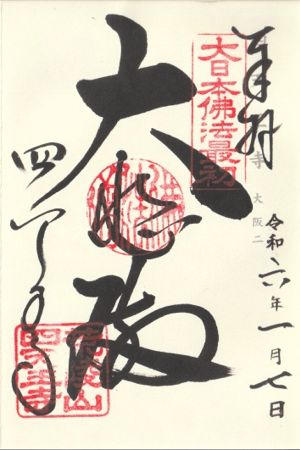 奉拝
大日本佛法最初
寺 大阪二
令和六年一月七日
大悲殿
四天王寺
荒陵山
四天王寺